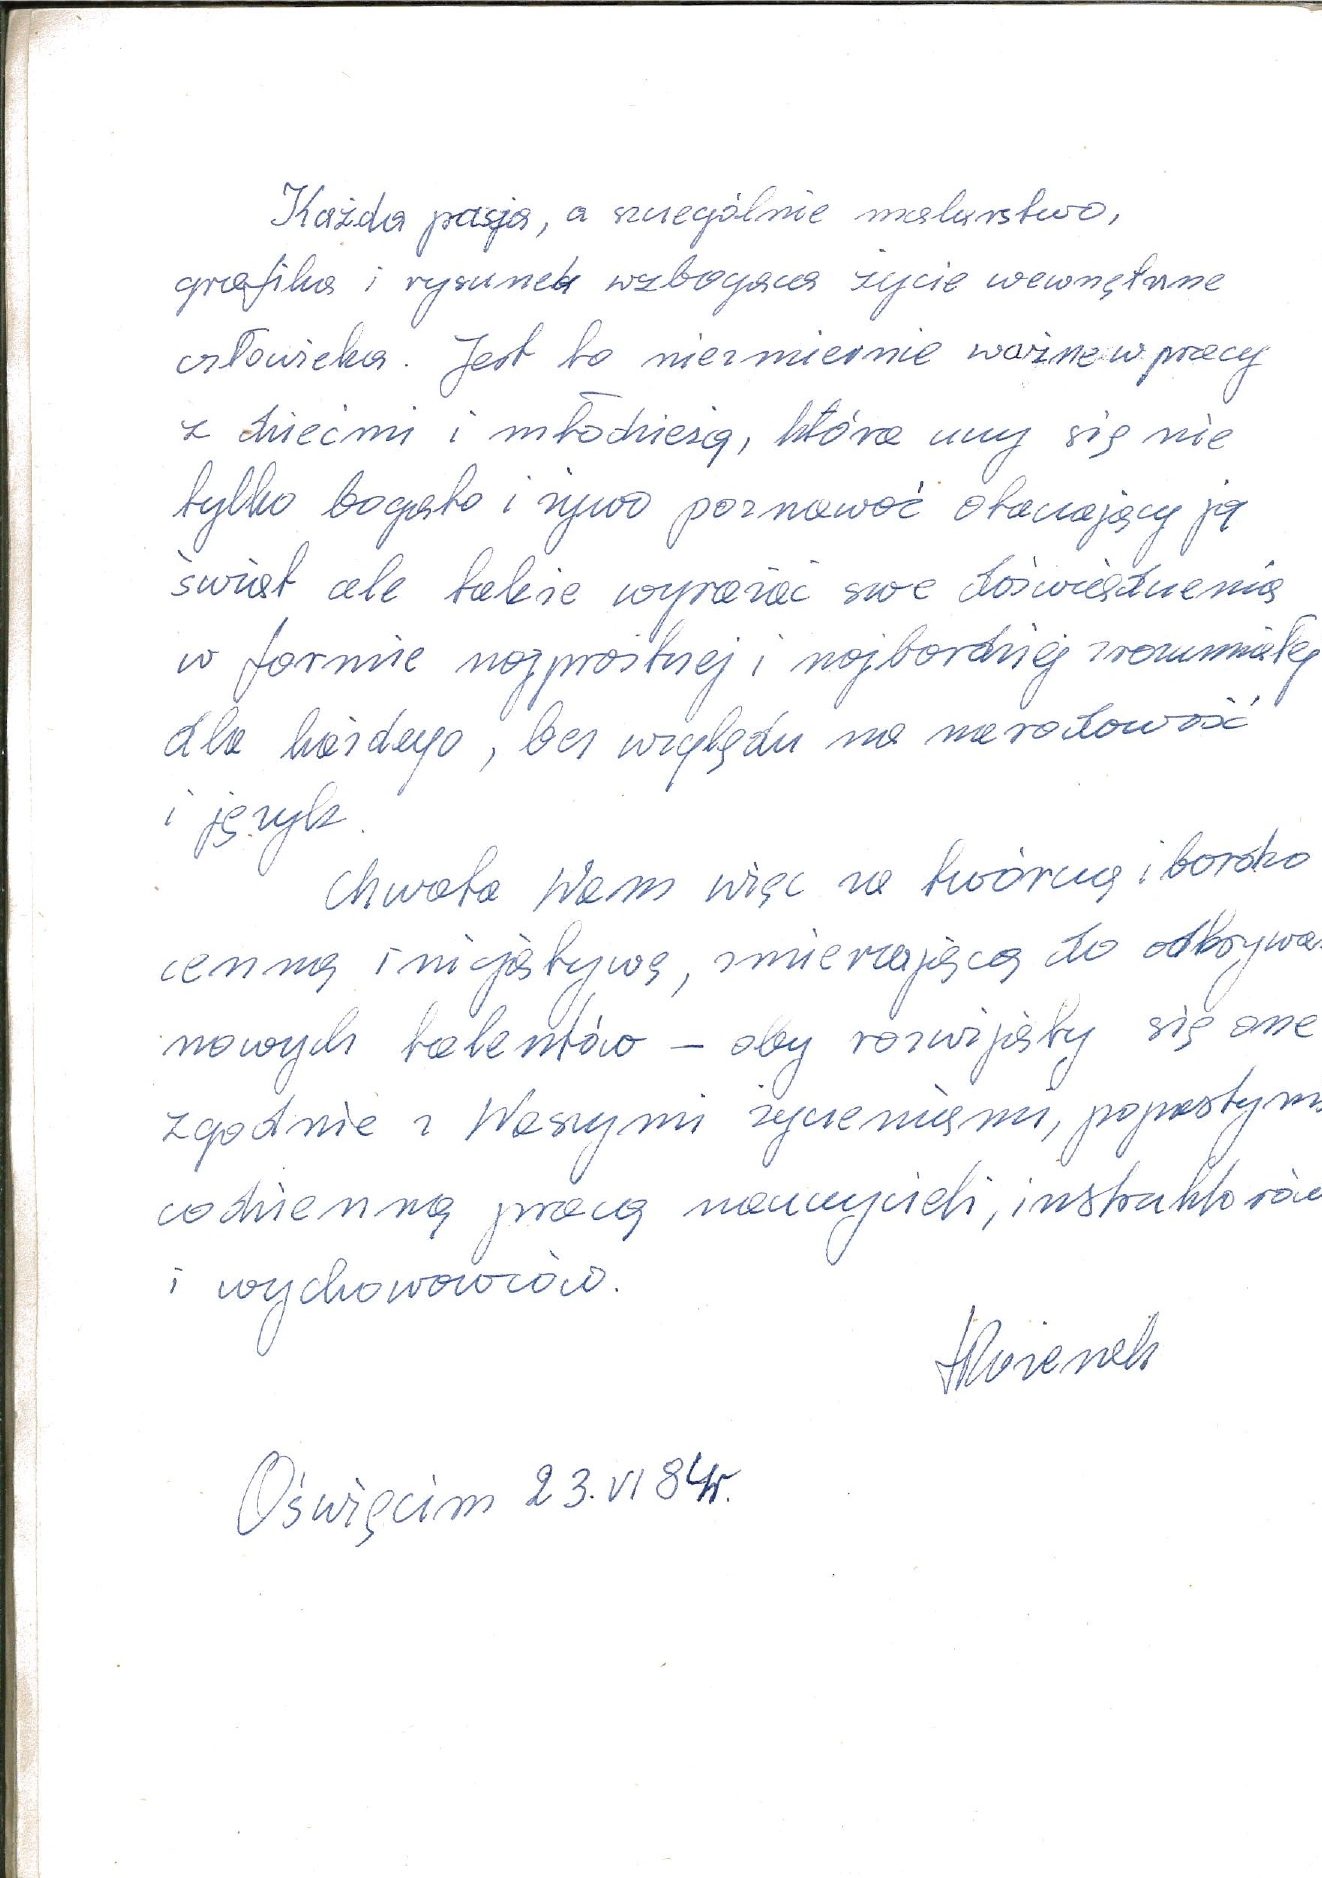 Każda pasja, a szczególnie malarstwo,
grafika i rysunek wzbogaca życie wewnętrzne
człowieka. Jest to niezmiernie ważne w pracy
z dziećmi i młodzieżą, która uczy się nie
tylko bogato i żywo poznawać otaczający ją
świat ale także wyrażać swe doświadczenia
w formie najprostszej i najbardziej zrozumiałej
dla każdego, bez względu na narodowość
i język.
Chwała Wam więc za twórczą i bardzo
cenną inicjatywę, zmierzającą do odkrywa
nowych talentów – aby rozwijały się one
zgodnie z Waszymi życzeniami, popartymi
codzienną pracą nauczycieli, instruktorów
i wychowawców.
Oświęcim 23. VI 84r.